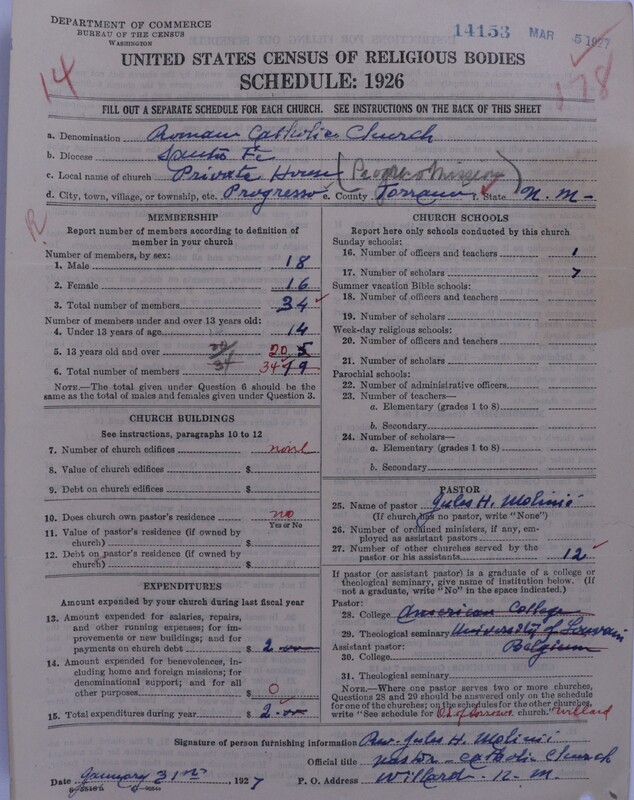 DEPARTMENT OF COMMERCE
BUREAU OF THE CENSUS
WASHINGTON
14153 MAR 5 1927
UNITED STATES CENSUS OF RELIGIOUS BODIES
SCHEDULE: 1926
14
178
FILL OUT A SEPARATE SCHEDULE FOR EACH CHURCH. SEE INSTRUCTIONS ON THE BACK OF THIS SHEET
a. Denomination Roman Catholic Church
b. Diocese Santa Fe
c. Local name of church Private House (Progresso Mission)
d. City, town, village, or township, etc. Progresso e. County Torrance f. State N. M-
R
MEMBERSHIP
Report number of members according to definition of member in your church
Number of members, by sex:
1. Male 18
2. Female 16
3. Total number of members 34
Number of members under and over 13 years old:
4. Under 13 years of age 14
5. 13 years old and over 20/34 20 5
6. Total number of members 34 19
NOTE.—The total given under Question 6 should be the same as the total of males and females given under Question 3.
CHURCH BUILDINGS
See instructions, paragraphs 10 to 12
7. Number of church edifices none
8. Value of church edifices $
9. Debt on church edifices $
10. Does church own pastor's residence no
Yes or No
11. Value of pastor's residence (if owned by church) $
12. Debt on pastor's residence (if owned by church) $
EXPENDITURES
Amount expended by your church during last fiscal year
13. Amount expended for salaries, repairs, and other running expenses; for improvements or new buildings; and for payments on church debt $ 2
14. Amount expended for benevolences, including home and foreign missions; for denominational support; and for all other purposes $ 0
15. Total expenditures during year $ 2
CHURCH SCHOOLS
Report here only schools conducted by this church
Sunday schools:
16. Number of officers and teachers 1
17. Number of scholars 7
Summer vacation Bible schools:
18. Number of officers and teachers
19. Number of scholars
Week-day religious schools:
20. Number of officers and teachers
21. Number of scholars
Parochial schools:
22. Number of administrative officers
23. Number of teachers—
a. Elementary (grades 1 to 8)
b. Secondary
24. Number of scholars—
a. Elementary (grades 1 to 8)
b. Secondary
PASTOR
25. Name of pastor Jules H. Molinié
(If church has no pastor, write "None")
26. Number of ordained ministers, if any, employed as assistant pastors
27. Number of other churches served by the pastor or his assistants 12
If pastor (or assistant pastor) is a graduate of a college or theological seminary, give name of institution below. (If not a graduate, write "No" in the space indicated.)
Pastor:
28. College American College
29. Theological seminary University of Louvain
Assistant pastor: Belgium
30. College
31. Theological seminary
NOTE.—Where one pastor serves two or more churches, Questions 28 and 29 should be answered only on the schedule for one of the churches; on the schedules for the other churches, write "See schedule for O. L. of Sorrows church." Willard
Signature of person furnishing information Rev. Jules H. Molinié
Official title Pastor - Catholic Church
Date January 31st 1927 P. O. Address Willard - N. M.